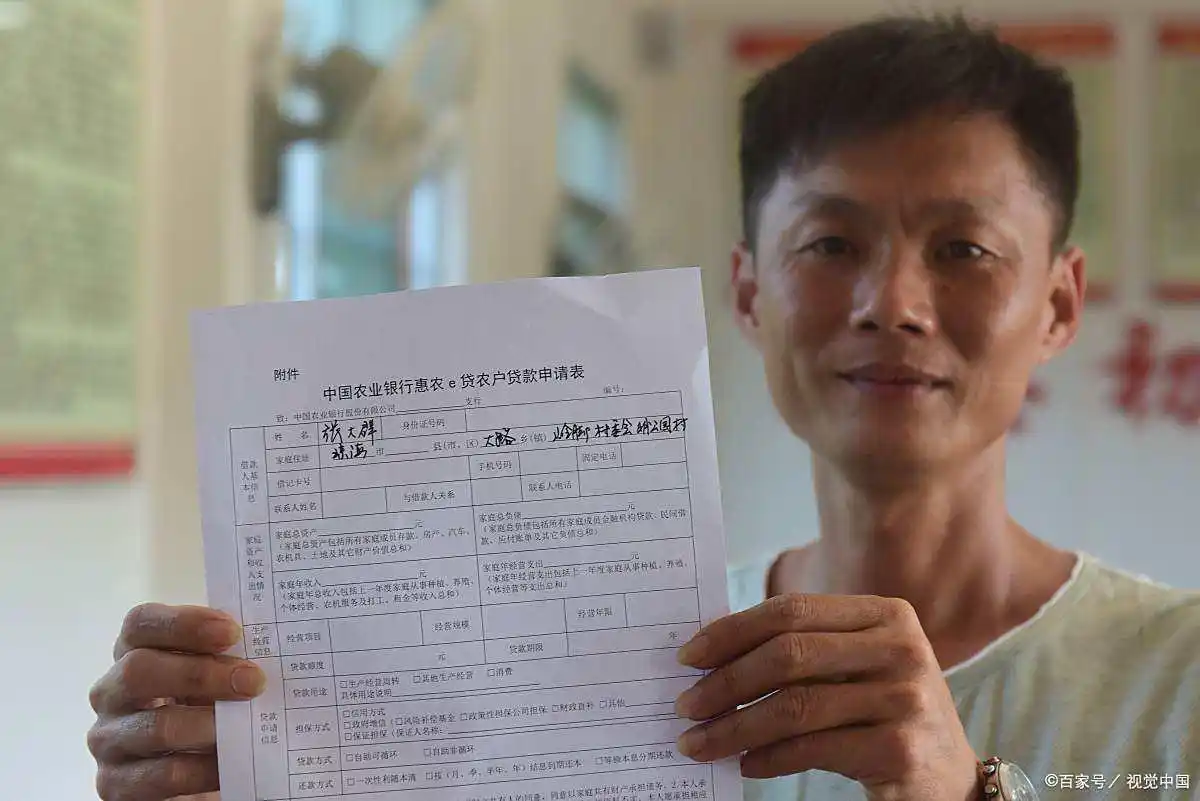 附件
中国农业银行惠农e贷农户贷款申请表
致:中国农业银行股份有限公司________支行 编号:
借款人基本信息
姓名 张大群 身份证号码
家庭住址 琼海市____县(市、区)大路乡(镇) 村委会 村
借记卡号 手机号码 固定电话
联系人姓名 与借款人关系 联系人电话
家庭资产和收入支出情况
家庭总资产________元
(家庭总资产包括所有家庭成员存款、房产、汽车、农机具、土地及其它财产价值总和)
家庭总负债________元
(家庭总负债包括所有家庭成员金融机构贷款、民间借款、应付账单及其它负债总和)
家庭年收入________元
(家庭年总收入包括上一年度家庭从事种植、养殖、个体经营、农机服务及打工、租金等收入总和)
家庭年经营支出________元
(家庭年经营支出包括上一年度家庭从事种植、养殖、个体经营等支出总和)
生产经营信息
经营项目 经营规模 经营年限
贷款申请信息
贷款额度 元 贷款期限 年
贷款用途 □生产经营周转 □其他生产经营 □消费
具体用途说明________
担保方式 □信用方式
□政府增信(□风险补偿基金 □政策性担保公司担保 □财政直补 □其他____
□保证担保(保证人名称:____
贷款方式 □自助可循环 □自助非循环
还款方式 □一次性利随本清 □按(月、季、半年、年)结息到期还本 □等额本息分期还款
共有人的同意,同意以家庭共有财产承担债务。2.本人承
本人愿承担相应
©百家号/视觉中国